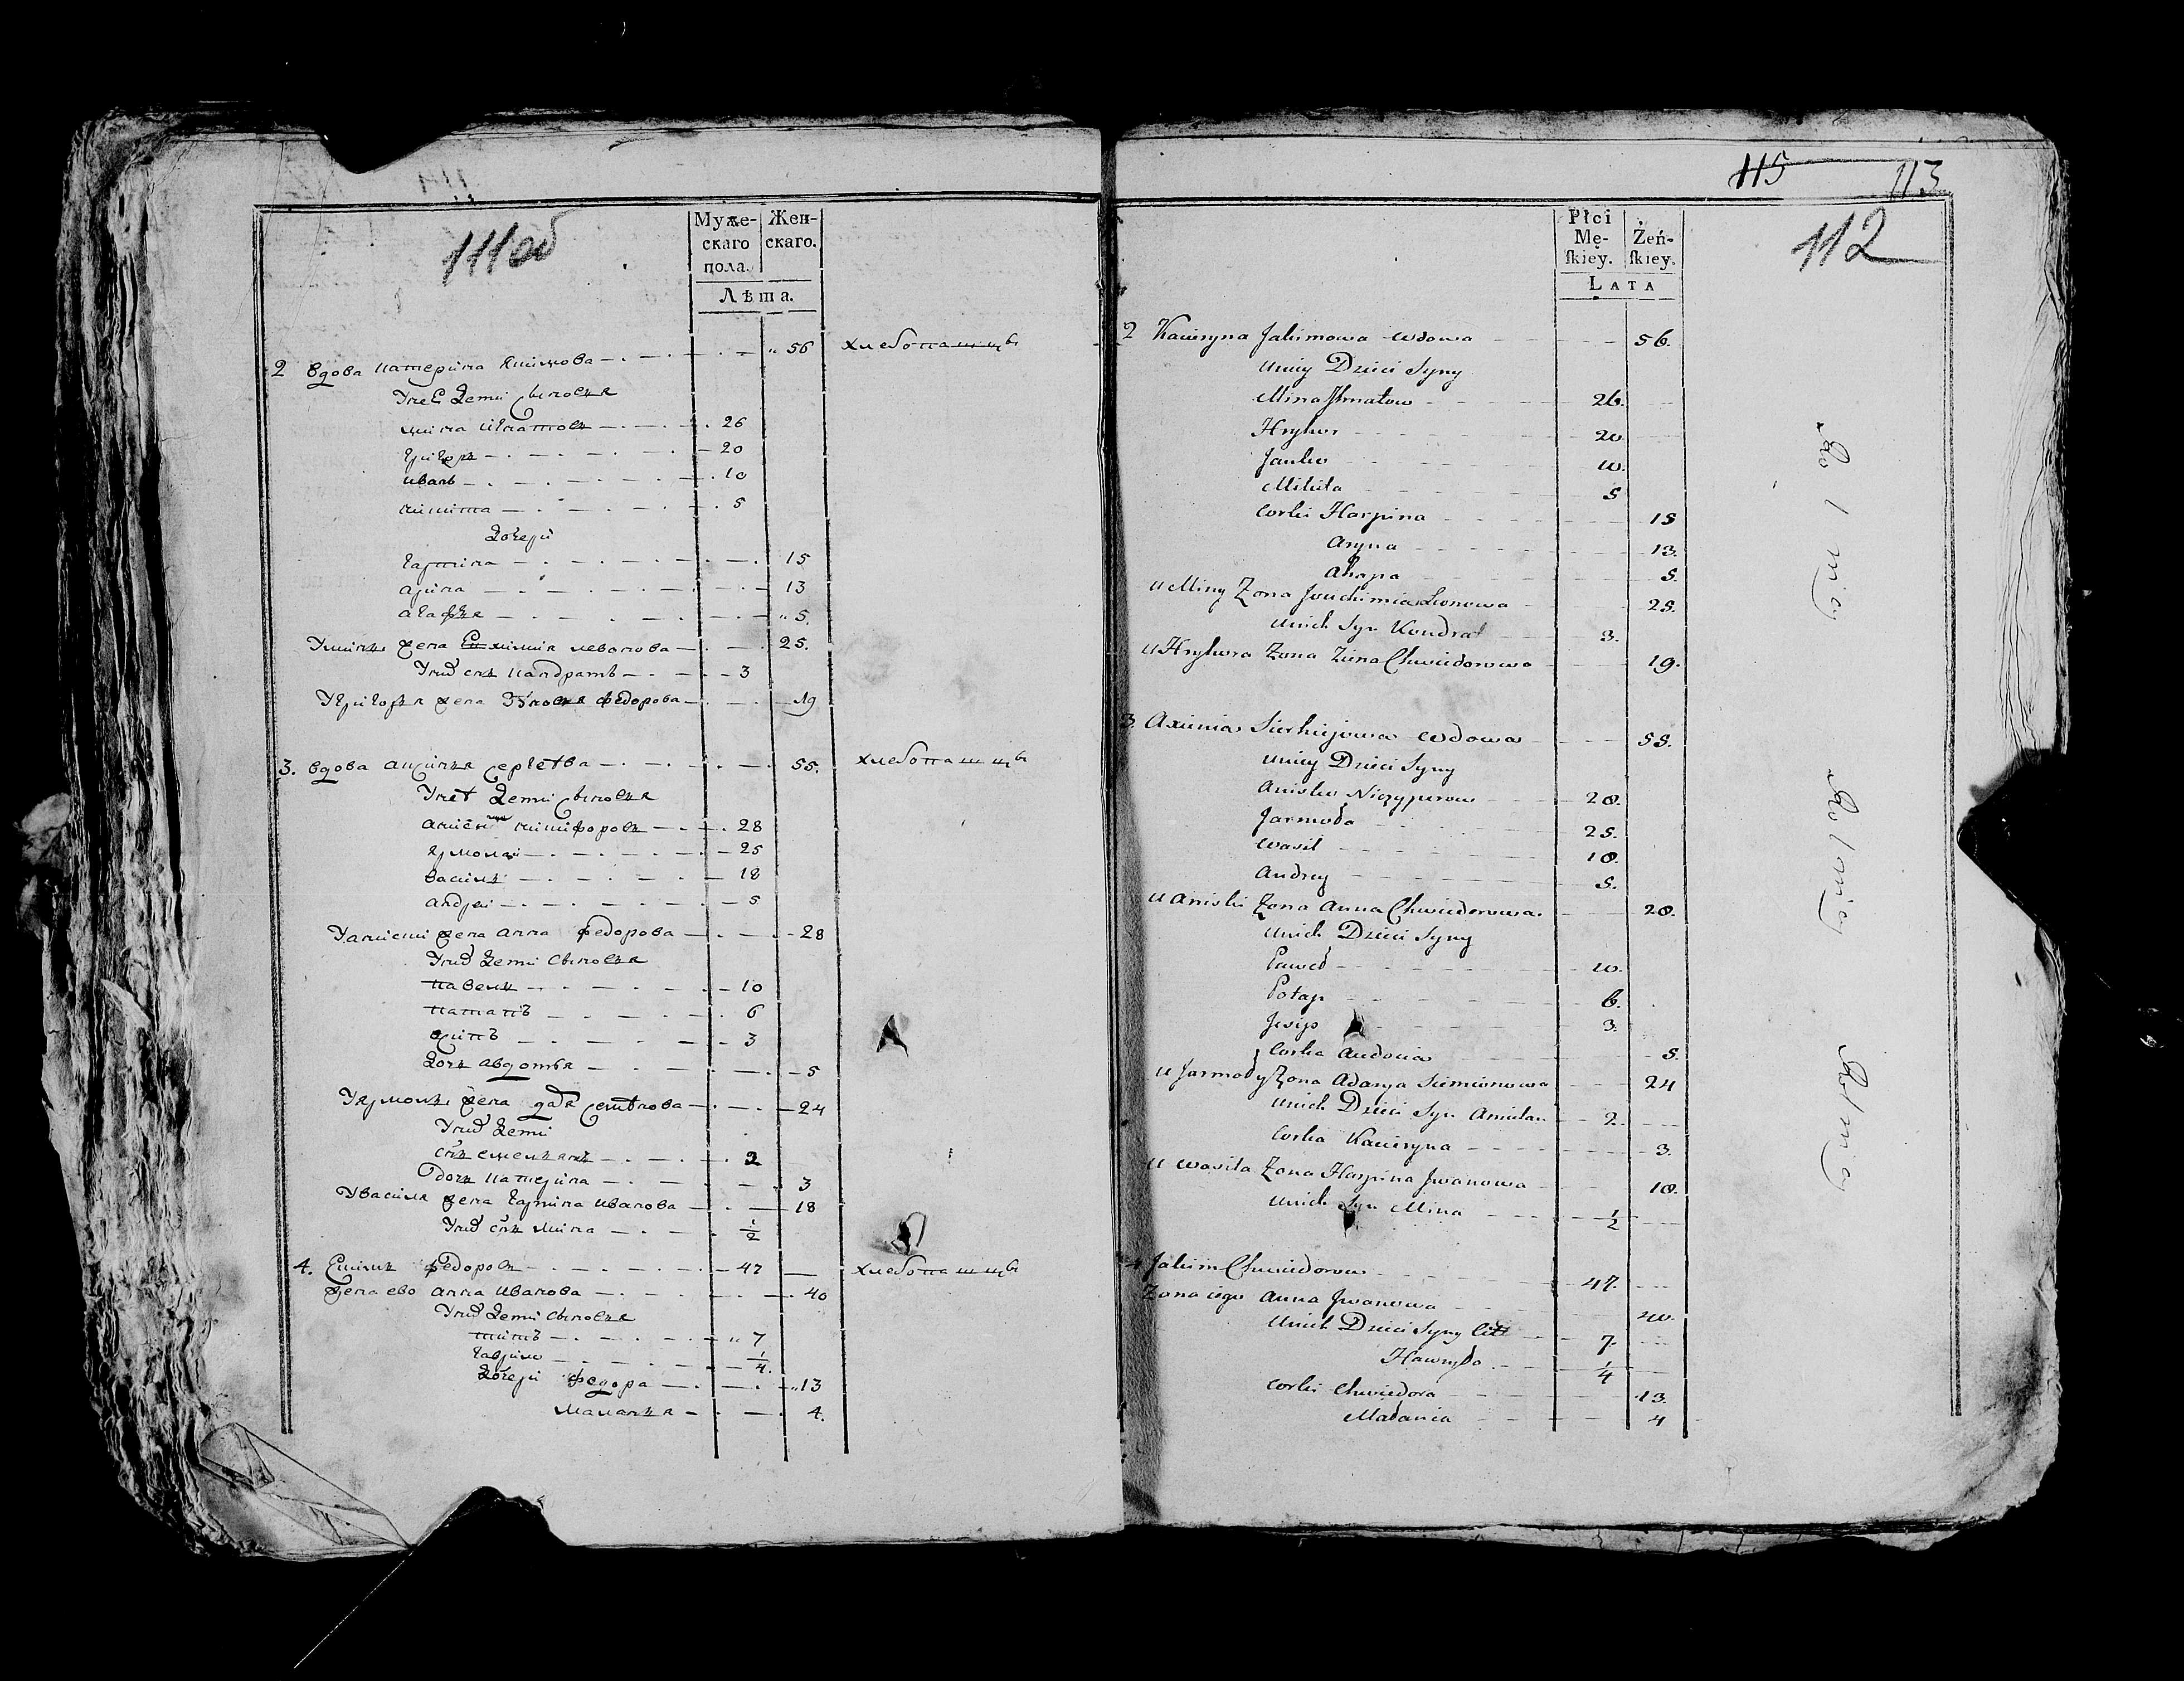 111об
Муже-
скаго
пола.
Жен-
скаго.
Лѣта.
2 вдова катерина якимова 56 хлебопашцы
У нее дети сыновья
мина игнатовъ 26
григоръ 20
иванъ 10
никита 5
дочери
гарпина 15
арина 13
агафья 5
У мины жена левонова 25.
У них снъ кандратъ 3
У григорья жена федорова 19
3. вдова аксинья сергеева 55. хлебопашцы
У неѣ дети сыновья
никифоровъ 28
ярмолай 25
василъ 18
андрей 5
жена анна федорова 28
У них дети сыновья
павелъ 10
патапъ 6
3
дочь авдотья 5
У ярмолы жена семѣнова 24
У них дети
снъ емельянъ 2
дочь катерина 3
У василя жена гарпина иванова 18
У них снъ мина 1/2
4. Екимъ федоровъ 47 хлебопашцы
жена ево анна иванова 40
У них дети сыновья
титъ 7
гаврило 1/4.
дочери федора 13
маланья 4.
115 113
112
Płci
Mę-
ſkiey.
Żeń-
ſkiey.
LATA
2 Kateryna Jakimowa wdowa 56.
u niey Dzieci Syny
Mina Ihnatow 26.
Hryhor 20
Janko 10.
Mikita 5
Corki Harpina 15
Aryna 13.
Ahapa 5.
u Miny Zona Jouchimia Leonowa 25.
u nich Syn Kondrat 3.
u Hryhora Zona Zina Chwiedorowa 19.
3. Axinia Sierhiejowa wdowa 55.
u niey Dzieci Syny
Anisko Niczyperow 28.
Jarmoła 25.
Wasil 18.
Andrey 5.
u Aniski Zona Anna Chwiedorowa. 28.
u nich Dzieci Syny
Paweł 10.
Potap 6.
Josip 3.
Corka Audocia 5.
u Jarmoły Zona Adarya Siemionowa 24
u nich Dzieci Syn Amielan 2.
Corka Kateryna 3.
u Wasila Zona Harpina Jwanowa 18.
u nich Syn Mina 1/2
4 Jakim Chwiedorow 47.
Zona iego Anna Jwanowa 40.
u nich Dzieci Syny Cit 7.
Hawryło 1/4
Corki Chwiedora 13.
Małania 4